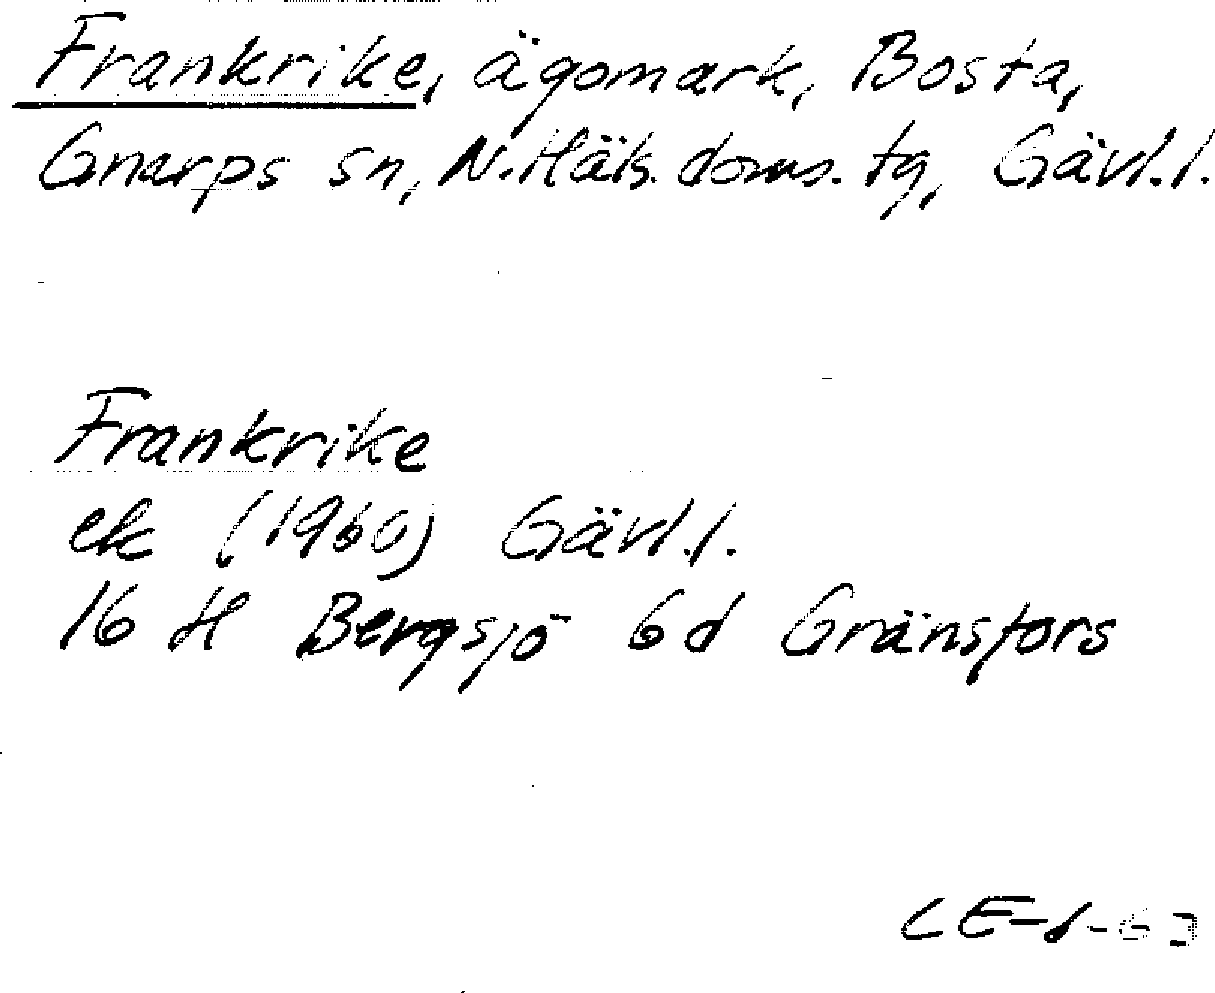 Frankrike, ägomark, Bosta,
Gnarps sn, N. Häls. doms. tg, Gävl. l.
Frankrike
ek (1960) Gävl. l.
16 H Bergsjö 6d Gränsfors